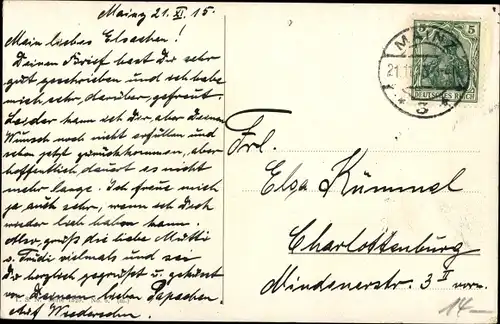 Mainz 21. XI. 15.
Mein liebes Elsachen!
Deinen Brief hast Du sehr
gut geschrieben und ich habe
mich sehr darüber gefreut.
Leider kann ich Dir aber Deinen
Wunsch noch nicht erfüllen und
schon jetzt zurückkommen, aber
hoffentlich dauert es nicht
mehr lange. Ich freue mich
ja auch sehr, wenn ich Dich
wieder lieb haben kann.
Also, grüß die liebe Mutti
u. Trudi vielmals und sei
Du herzlich gegrüßt u. geküsst
von Deinem lieben Papachen
Auf Wiedersehn.
MAINZ
21.11.15
* 3 *
5
DEUTSCHES REICH
Frl.
Elsa Kümmel
Charlottenburg
Mindenerstr. 3 II vorn.
14.-